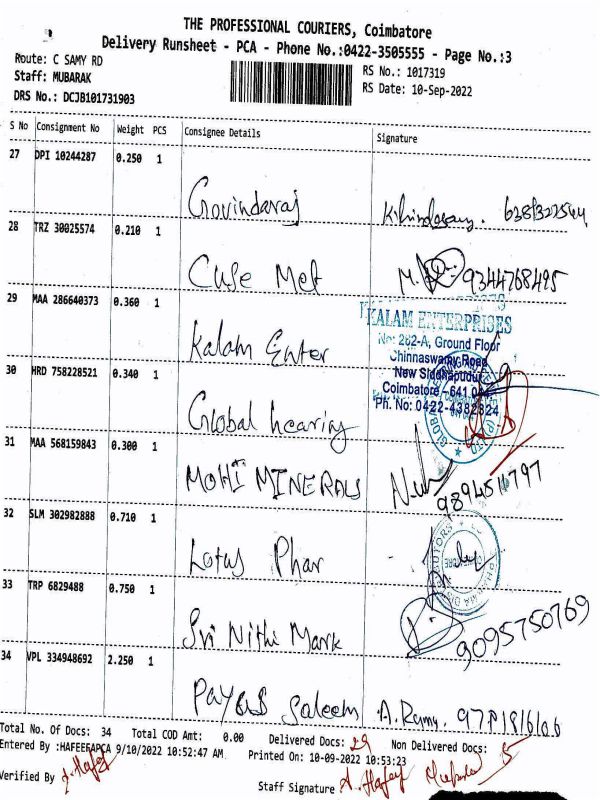 THE PROFESSIONAL COURIERS, Coimbatore
Delivery Runsheet - PCA - Phone No.:0422-3505555 - Page No.:3
Route: C SAMY RD
Staff: MUBARAK
DRS No.: DCJB101731903
RS No.: 1017319
RS Date: 10-Sep-2022
S No Consignment No Weight PCS Consignee Details Signature
27 DPI 10244287 0.250 1
Govindaraj
28 TRZ 30025574 0.210 1
Cuse Met 9344768495
29 MAA 286640373 0.360 1
KALAM ENTERPRISES
No: 282-A, Ground Floor
Chinnaswamy Road
New Siddhapudur
Coimbatore - 641 0
Ph. No: 0422-4382824
Kalam Enter
30 HRD 758228521 0.340 1
Global hearing
31 MAA 568159843 0.300 1
MOHI MINERALS
32 SLM 302982888 0.710 1
Lotus Phar
33 TRP 6829488 0.750 1
Sri Nithi Mark 9095750769
34 VPL 334948692 2.250 1
Payas Saleem A. Ramy.
Total No. Of Docs: 34 Total COD Amt: 0.00 Delivered Docs: 29 Non Delivered Docs: 5
Entered By :HAFEEFAPCA 9/10/2022 10:52:47 AM Printed On: 10-09-2022 10:53:23
Verified By A. Hafeef
Staff Signature A. Hafeef